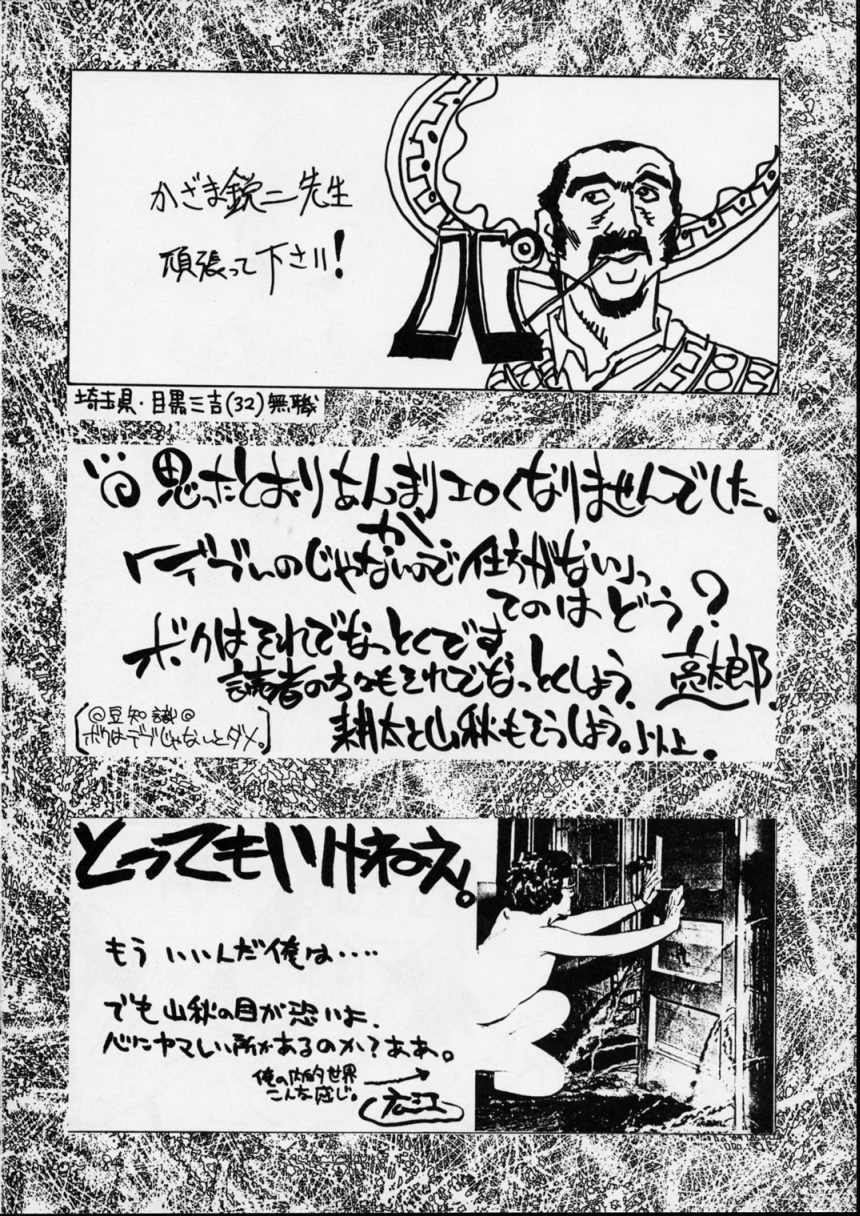 かざま鋭二先生
頑張って下さい!
埼玉県・目黒三吉(32)無職
思ったとおりあんまりエロくなりませんでした。
が
「デブいのじゃないので仕方がない」っ
てのはどう?
ボクはそれでなっとくです
読者の方々もそれでなっとくしよう。
亮太郎.
耕太と山秋もそうしよう。以上。
@豆知識@
ボクはデブじゃないとダメ。
とってもいけねえ。
もういいんだ俺は‥‥
でも山秋の目が恐いよ、
心にヤマしい所があるのか?ああ。
俺の内的世界
こんな感じ。
広江